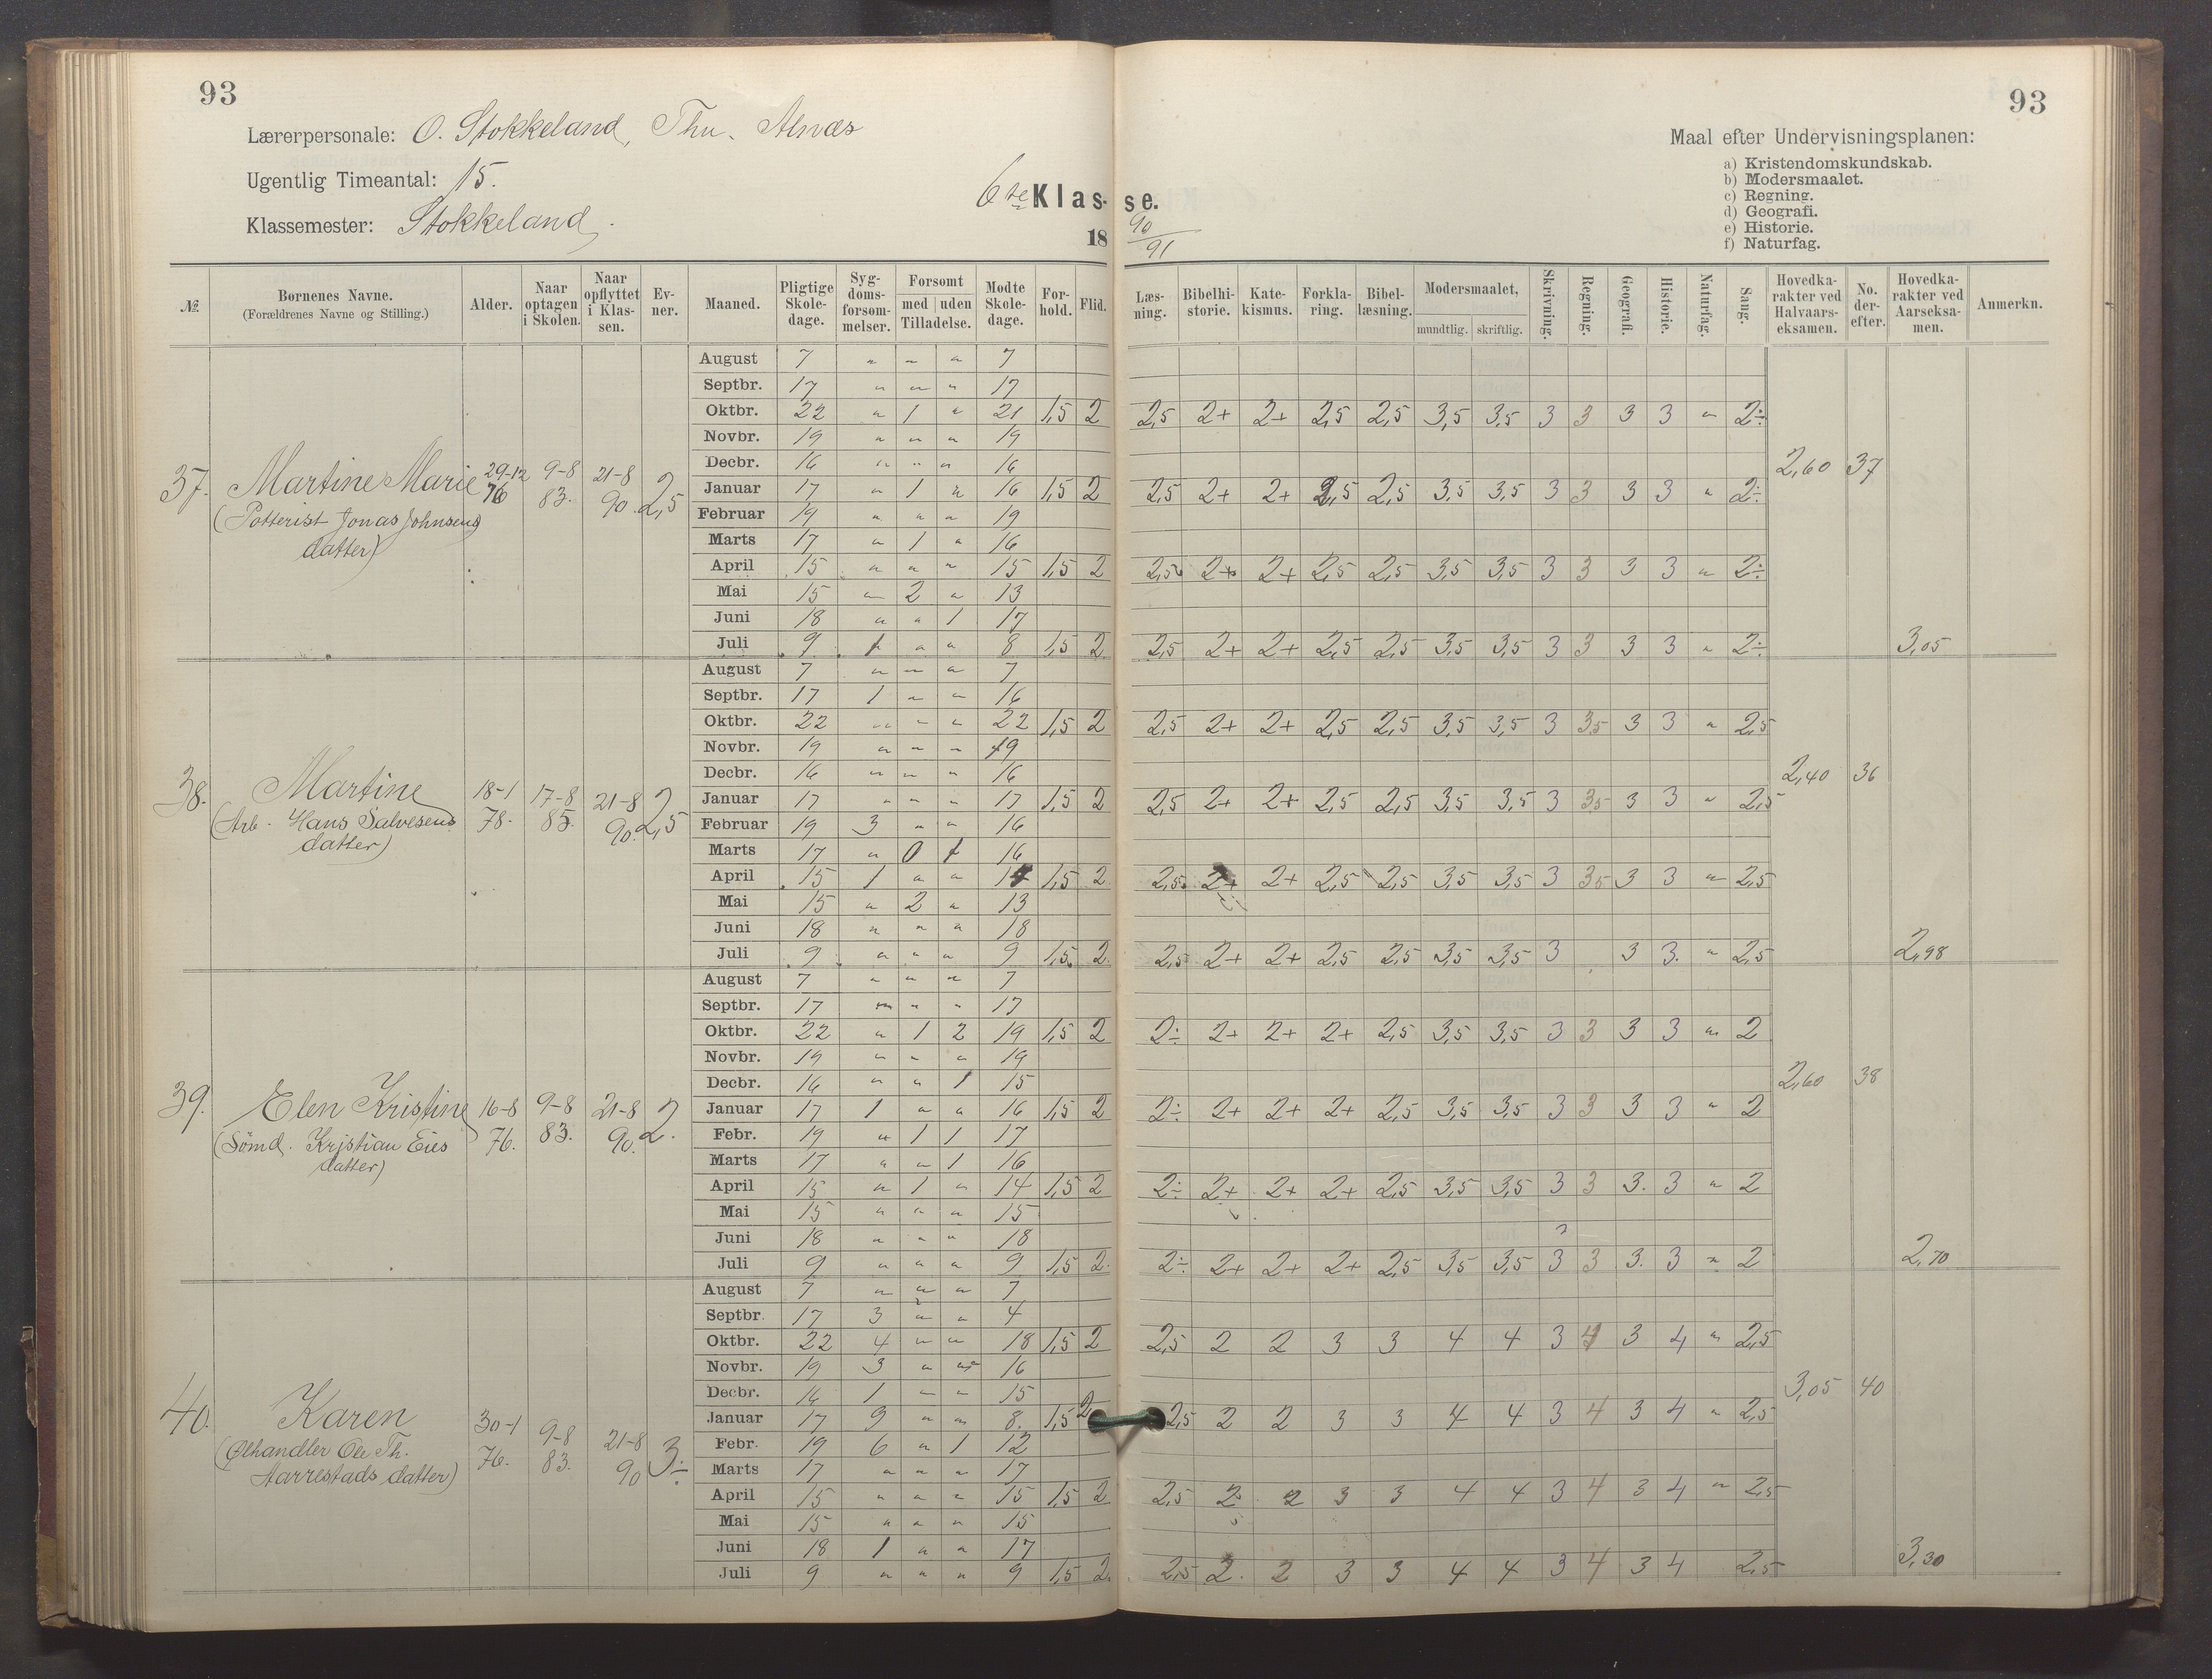 93
93
Lærerpersonale: O. Stokkeland, Thu. Alnæs
Ugentlig Timeantal: 15.
Klassemester: Stokkeland.
6te Klasse.
18 90/91
Maal efter Undervisningsplanen:
a) Kristendomskundskab.
b) Modersmaalet.
c) Regning.
d) Geografi.
e) Historie.
f) Naturfag.
№ | Børnenes Navne. (Forældrenes Navne og Stilling.) | Alder. | Naar optagen i Skolen. | Naar opflyttet i Klassen. | Evner. | Maaned. | Pligtige Skoledage. | Sygdomsforsømmelser. | Forsømt med Tilladelse. | uden Tilladelse. | Mødte Skoledage. | Forhold. | Flid. | Læsning. | Bibelhistorie. | Katekismus. | Forklaring. | Bibellæsning. | Modersmaalet, mundtlig. | skriftlig. | Skrivning. | Regning. | Geografi. | Historie. | Naturfag. | Sang. | Hovedkarakter ved Halvaarseksamen. | No. derefter. | Hovedkarakter ved Aarseksamen. | Anmerkn.
37. Martine Marie 29-12 76 9-8 83. 21-8 90. 2,5
(Potterist Jonas Johnsens
datter)
August 7 " " " 7
Septbr. 17 " " " 17
Oktbr. 22 " 1 " 21 1,5 2 2,5 2+ 2+ 2,5 2,5 3,5 3,5 3 3 3 3 " 2÷
Novbr. 19 " " " 19
Decbr. 16 " " " 16 2,60 37
Januar 17 " 1 " 16 1,5 2 2,5 2+ 2+ 2,5 2,5 3,5 3,5 3 3 3 3 " 2÷
Februar 19 " " " 19
Marts 17 " 1 " 16
April 15 " " " 15 1,5 2 2,5 2+ 2+ 2,5 2,5 3,5 3,5 3 3 3 3 " 2÷
Mai 15 " 2 " 13
Juni 18 " " 1 17
Juli 9 1 " " 8 1,5 2 2,5 2+ 2+ 2,5 2,5 3,5 3,5 3 3 3 3 " 2÷ 3,05
38. Martine 18-1 78. 17-8 85. 21-8 90. 2,5
(Arb. Hans Salvesens
datter)
August 7 " " " 7
Septbr. 17 1 " " 16
Oktbr. 22 " " " 22 1,5 2 2,5 2+ 2+ 2,5 2,5 3,5 3,5 3 3,5 3 3 " 2,5
Novbr. 19 " " " 19
Decbr. 16 " " " 16 2,40 36
Januar 17 " " " 17 1,5 2 2,5 2+ 2+ 2,5 2,5 3,5 3,5 3 3,5 3 3 " 2,5
Februar 19 3 " " 16
Marts 17 " 0 1 16
April 15 1 " " 14 1,5 2 2,5 2+ 2+ 2,5 2,5 3,5 3,5 3 3,5 3 3 " 2,5
Mai 15 " 2 " 13
Juni 18 " " " 18
Juli 9 " " " 9 1,5 2. 2,5 2+ 2+ 2,5 2,5 3,5 3,5 3 3 3. " 2,5 2,98
39. Elen Kristine 16-8 76. 9-8 83. 21-8 90. 2.
(Sømd. Kristian Eies
datter)
August 7 " " " 7
Septbr. 17 " " " 17
Oktbr. 22 " 1 2 19 1,5 2 2÷ 2+ 2+ 2+ 2,5 3,5 3,5 3 3 3 3 " 2
Novbr. 19 " " " 19
Decbr. 16 " " 1 15 2,60 38
Januar 17 1 " " 16 1,5 2 2÷ 2+ 2+ 2+ 2,5 3,5 3,5 3 3 3 3 " 2
Febr. 19 " 1 1 17
Marts 17 " " 1 16
April 15 " 1 " 14 1,5 2 2÷ 2+ 2+ 2+ 2,5 3,5 3,5 3 3 3. 3 " 2
Mai 15 " " " 15
Juni 18 " " " 18
Juli 9 " " " 9 1,5 2. 2÷ 2+ 2+ 2+ 2,5 3,5 3,5 3 3 3. 3 " 2 2,70
40. Karen 30-1 76. 9-8 83. 21-8 90 3÷
(Ølhandler Ole Th.
Aarrestads datter)
August 7 " " " 7
Septbr. 17 3 " " 4
Oktbr. 22 4 " " 18 1,5 2 2,5 2 2 3 3 4 4 3 4 3 4 " 2,5
Novbr. 19 3 " " 16
Decbr. 16 1 " " 15 3,05 40
Januar 17 9 " " 8. 1,5 2 2,5 2 2 3 3 4 4 3 4 3 4 " 2,5
Febr. 19 6 " 1 12
Marts 17 " " " 17
April 15 " " " 15 1,5 2 2,5 2 2 3 3 4 4 3 4 3 4 " 2,5
Mai 15 " " " 15
Juni 18 1 " " 17
Juli 9 " " " 9 1,5 2. 2,5 2. 2 3 3 4 4 3 4 3 4 2,5 3,30